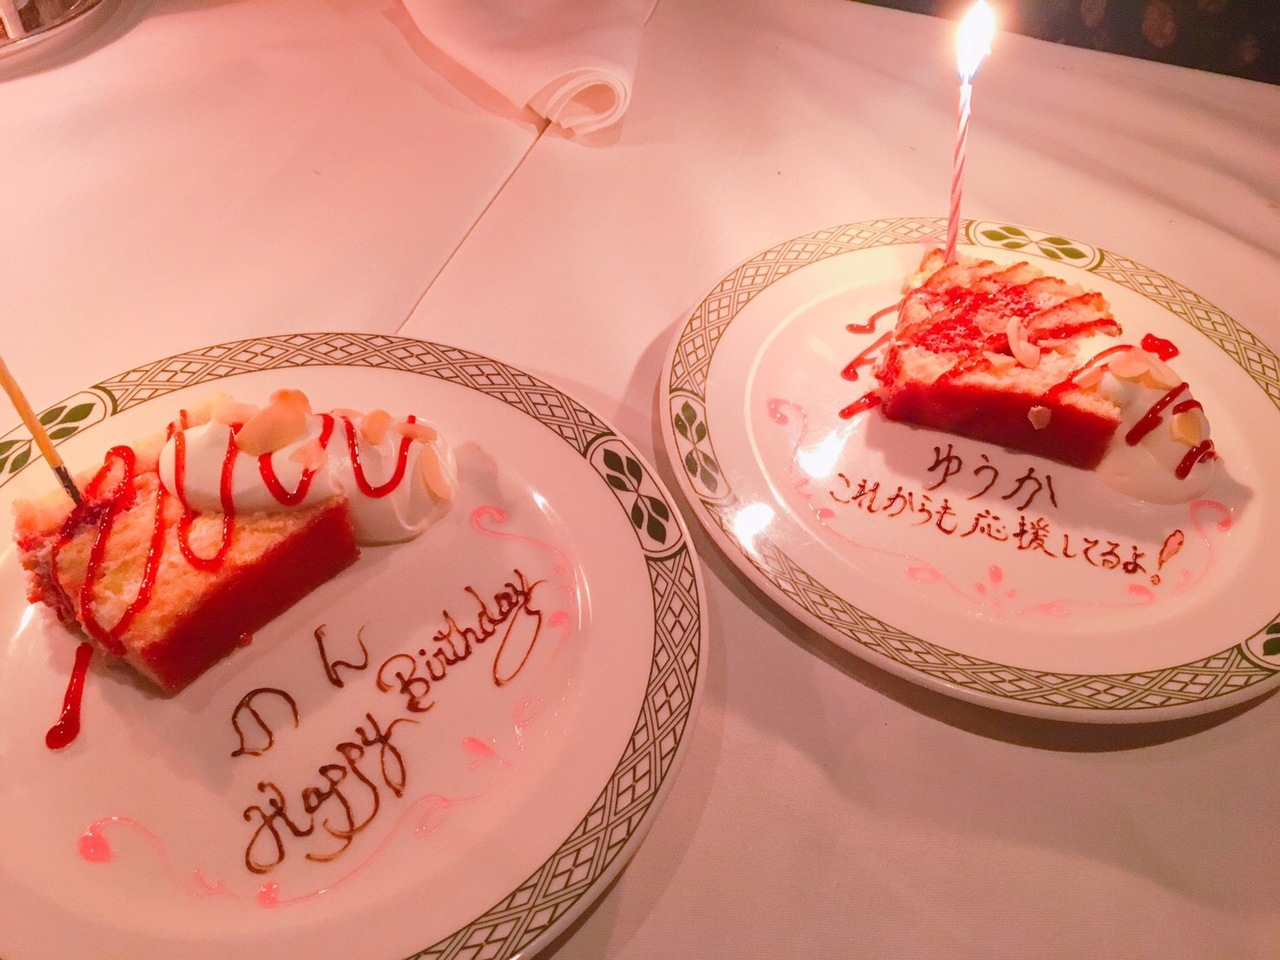 のん
Happy Birthday
ゆうか
これからも応援してるよ!